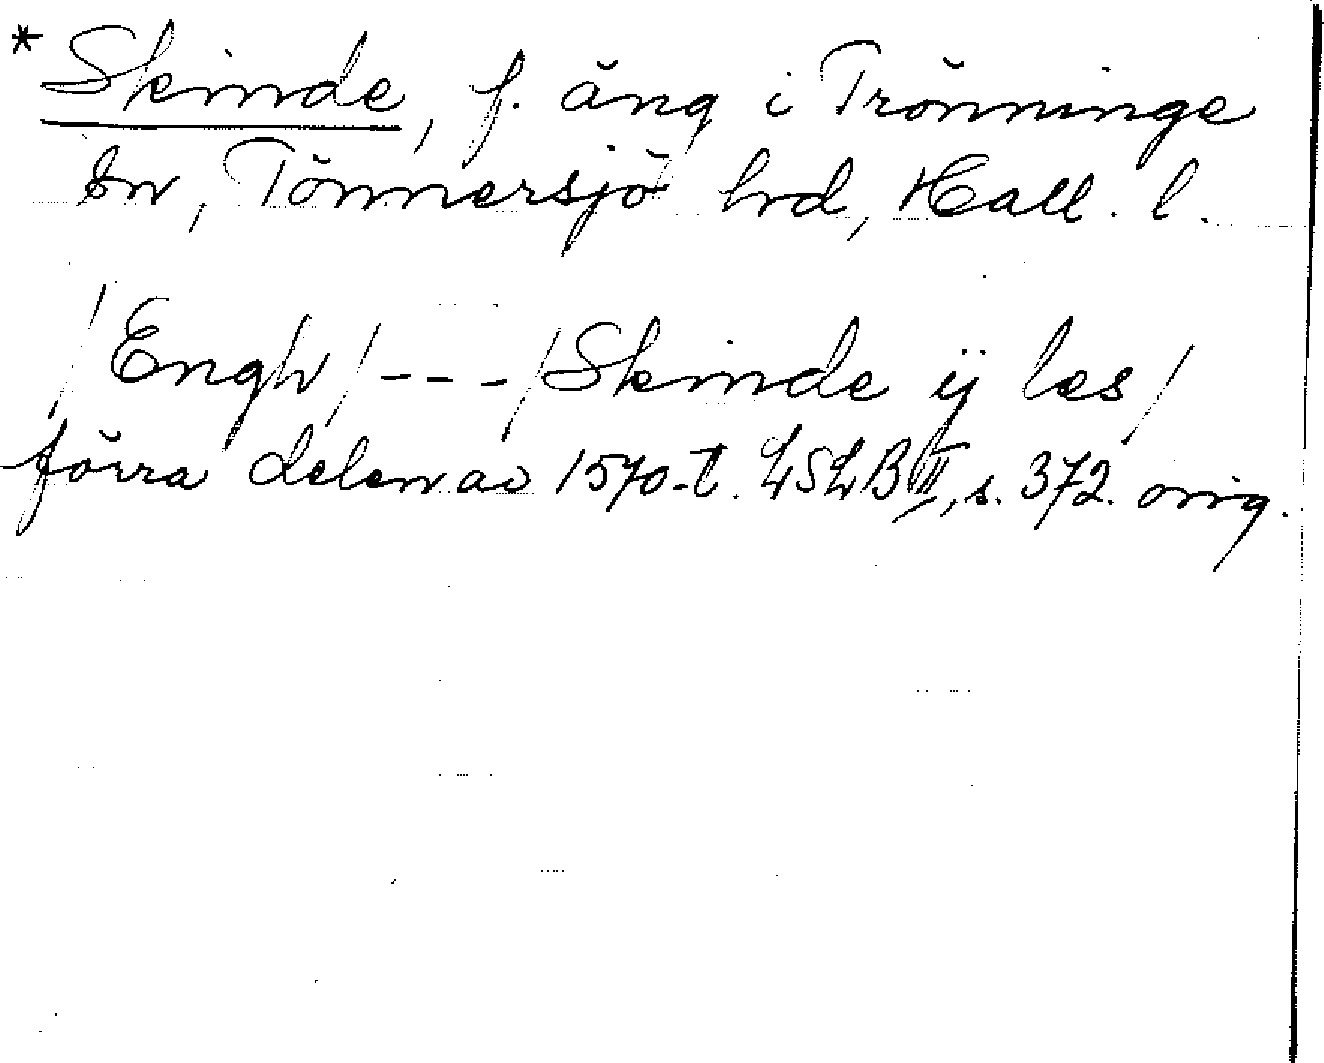 * Skinde, f. äng i Trönninge
sn, Tönnersjö hrd, Hall. l.
/Engh/---/Skinde ij læs/
förra delen av 1570-t. LSLB II, s. 372. orig.